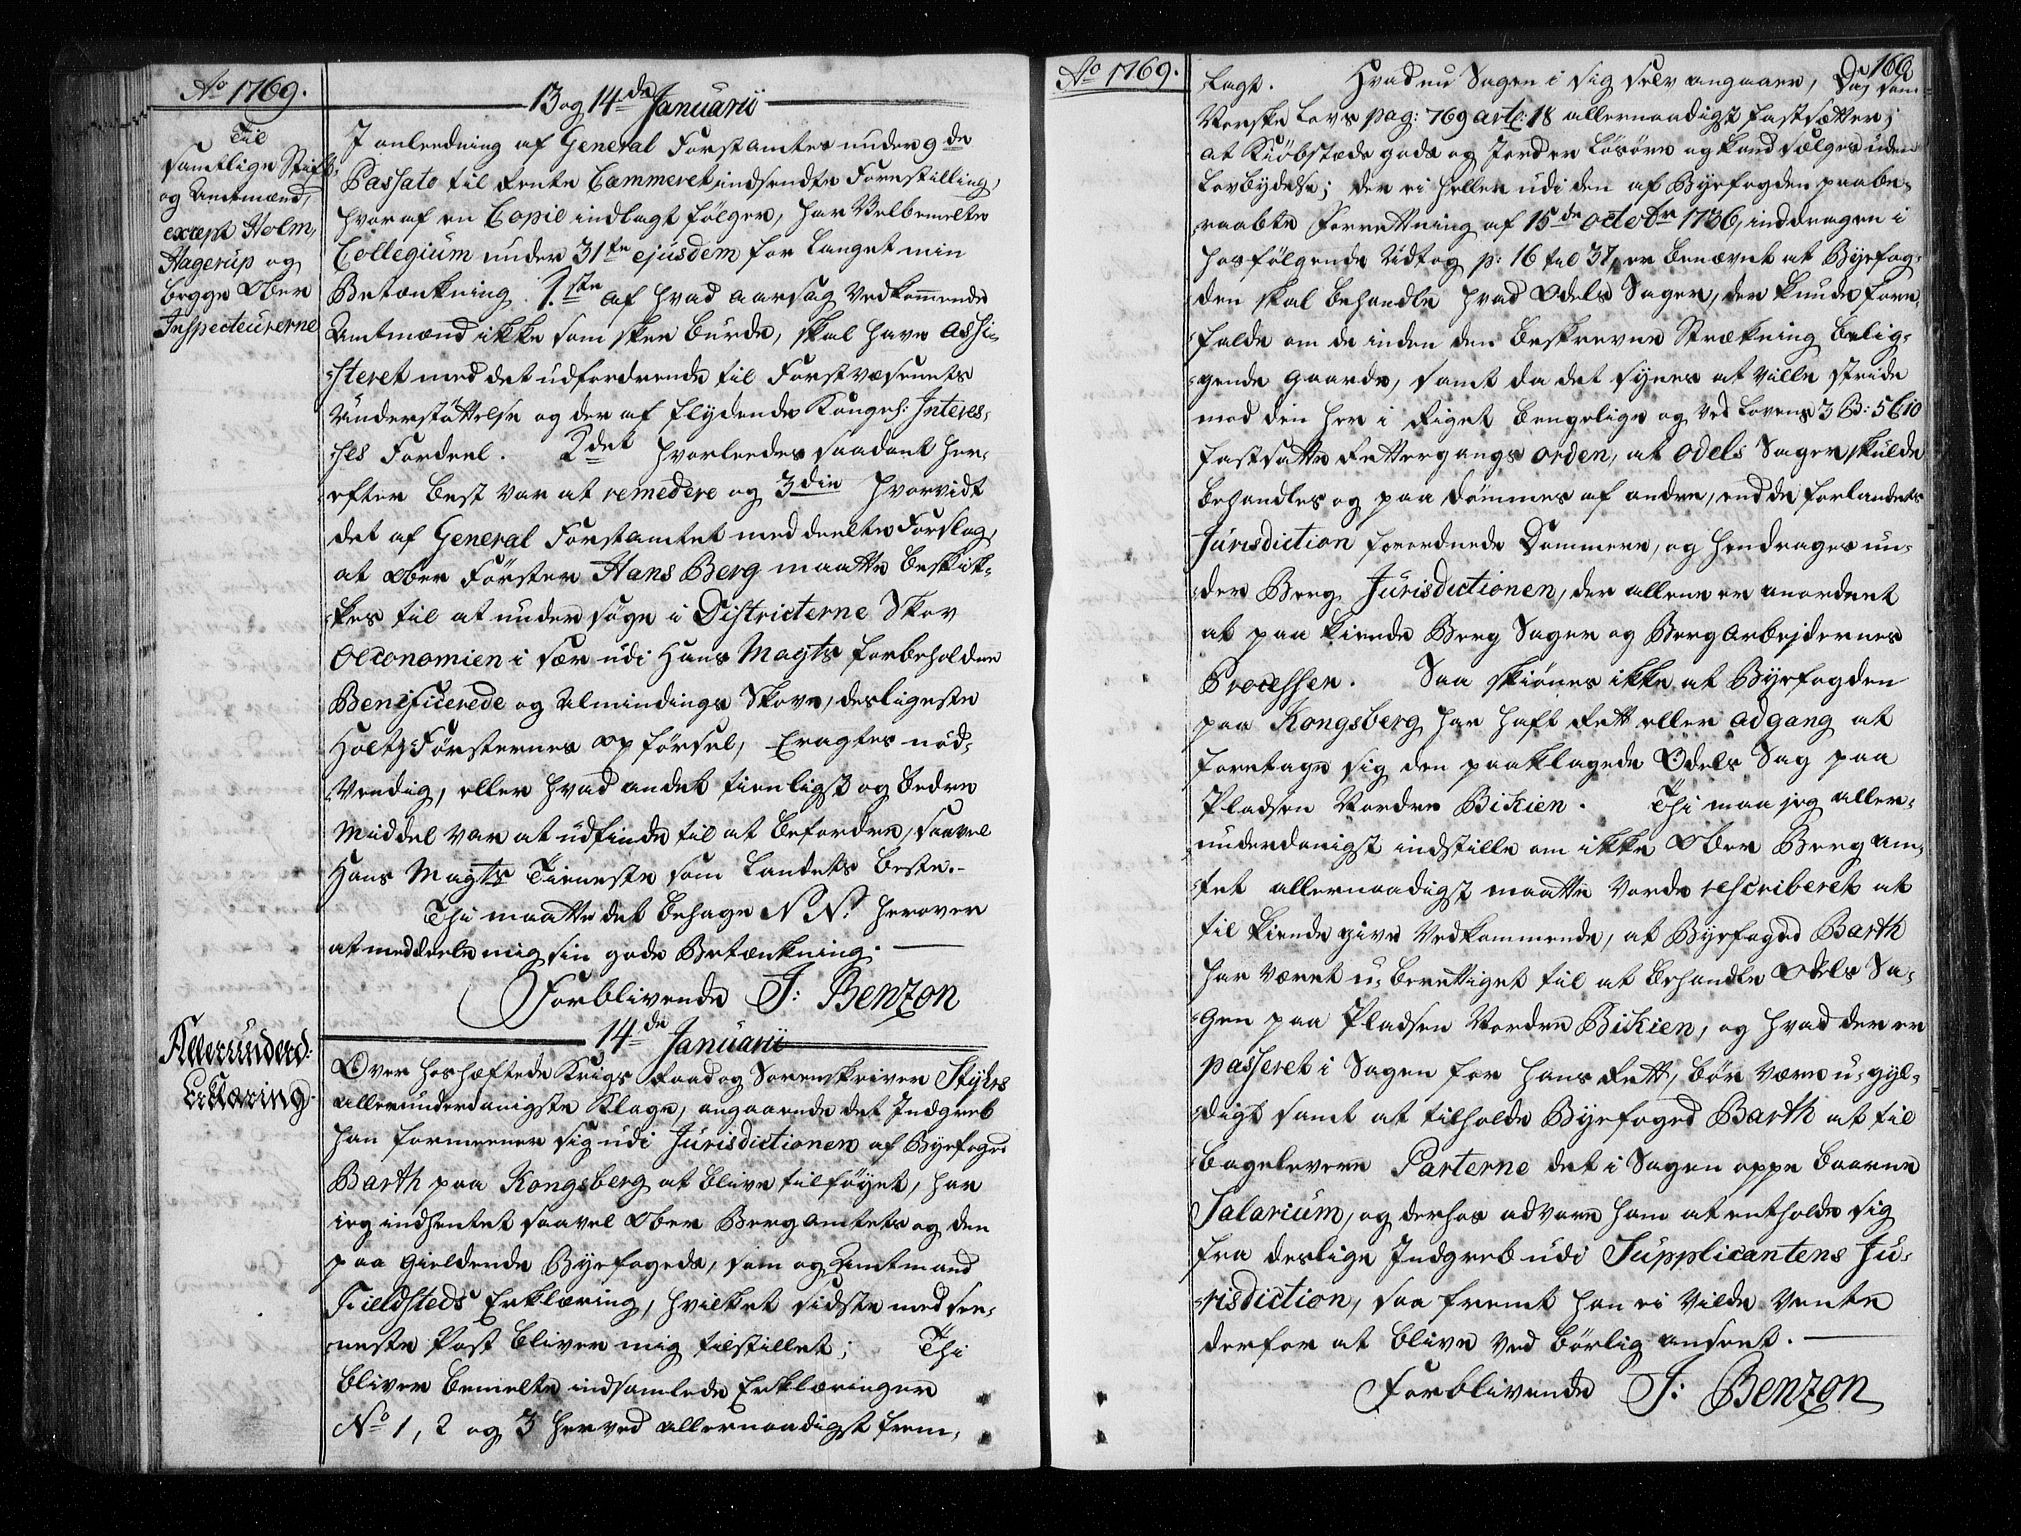 Ao 1769.
13 og 14de Januarii
Til
samtlige Stift-
og Amtmænd,
except Holm,
Hagerup og
begge Ober
Inspecteurerne
I anleedning af General Forstamtes under 9de
Passato til Rente Cammeret indsendte Forestilling,
hvoraf en Copie indlagt følger, har Velbemelte
Collegium under 31te ejusdem for langet min
Betænkning. 1.ste af hvad aarsag Vedkommende
Amtmænd ikke som skee burde, skal have assi-
steret med det udfordrende til Forstvæsenets
Understøttelse og der af flydende Kongel: Interes-
ses Fordeel. 2det hvorleedes saadant her-
efter best var at remedere og 3die hvorvidt
det af General Forstamtet meddeelte Forslag,
at Ober Förster Hans Berg maatte beskik-
kes til at undersøge i Districterne Skov
Oeconomien i sær udi Hans Mayts forbeholdne
Benificerede og Almindings Skove, desligeste
Holtz Försternes opførsel, Eragtes nød-
vendig, eller hvad andet tienligst og bedre
Middel var at udfinde til at befordre, saavel
Hans Mayts Tieneste som Landets beste.-
Thi maatte det behage N N: herover
at meddeele mig sin gode Betænkning.
Forblivende J: Benzon
14de Januarii
Allerunderd:
Erklæring.
Over hoshæftede Krigs Raad og Sorenskriver Stykes
allerunderdanigste Klage, angaaende det Indgreb
han formeener sig udi Jurisdictionen af Byefoged
Barth paa Kongsberg at blive tilføyet, har
ieg indhentet saavel Ober Berg Amtets og den
paa Gieldende Byefogeds, som og Amtmand
Fieldsteds Erklæring, hvilket sidste med see-
neste Post bliver mig tilstillet; Thi
bliver bemelte indsamlede Erklæringer
No 1, 2 og 3 herved allernaadigst frem-
Ao 1769.
166
lagt. Hvad nu Sagen i sig selv angaaer, Da som
Norske Lovs pag: 769 artl: 18 allernaadigst fastsætter;
at Kiøbstæds gods og Jorder løsøre og kand sælges uden
Lovbydelse; der ei heller udi den af Byefogden paabe-
raabte Forrettning af 15de Octobr 1736, inddragen i
hosfølgende Udtog p: 16 til 37, er benævnt at Byefog-
den skal behandle hvad Odels Sager, der kunde fore-
falde om de inden den beskrevne Strækning belig-
gende gaarde, samt da det synes at ville stride
mod den her i Riget brugelige og ved Lovens 3 B: 5 C: 10
fastsatte Rettergangs orden, at Odels Sager skulde
behandles og paa dømmes af andre, end de forlandets
Jurisdiction forordnede Dommere, og hendrages un-
der Berg Jurisdictionen, der allene er anordnet
at paa kiende Berg Sager og Berg Arbejdernes
Processen. Saa skiønnes ikke at Byefogden
paa Kongsberg har haft Rett eller adgang at
foretage sig den paaklagede Odels Sag paa
Pladsen Nordre Bikien. Thi maa jeg aller-
underdanigst indstille om ikke Ober Berg am-
tet allernaadigst maatte vorde rescriberet at
til kiende give Vedkommende, at Byefoged Barth
har været u-berettiget til at behandle Odels Sa-
gen paa Pladsen Nordre Bikien, og hvad der er
passeret i Sagen for hans Rett, bør være u-gyl-
digt samt at tilholde Byefoged Barth at til
bagelevere Parterne det i Sagen oppe baarne
Salarium, og derhos advare ham at entholde sig
fra deslige Indgreb udi Supplicantens Ju-
risdiction, saa fremt han ei vilde vente
derfor at blive ved børlig anseet.
Forblivende J: Benzon